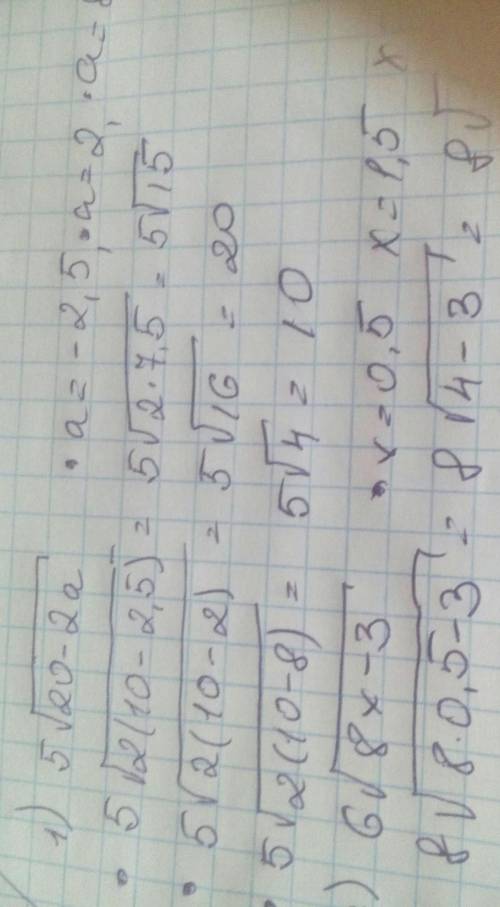 1) 5√20-2a • a = -2,5, • a = 2, • a = 8
• 5√2(10-2,5) = 5√2·7,5 = 5√15
• 5√2(10-2) = 5√16 = 20
• 5√2(10-8) = 5√4 = 10
) 6√8x-3 • x = 0,5 x = 1,5 x
8√8·0,5-3 = 8√4-3 = 8√